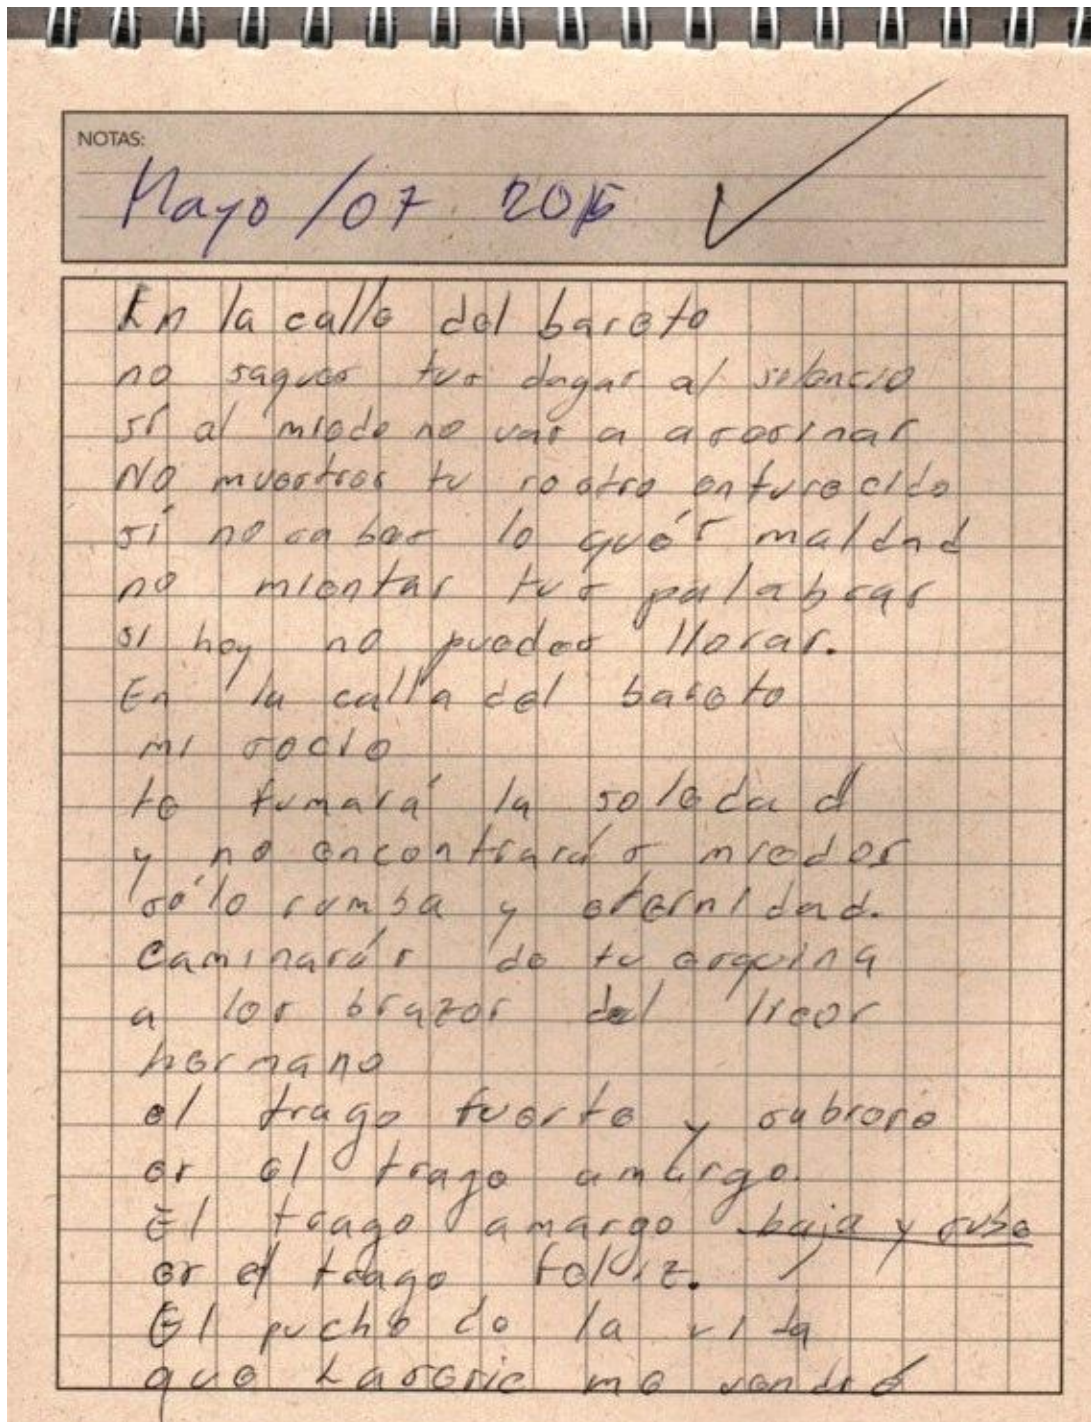 NOTAS:
Mayo/07 2015
En la calle del bareto
no saques tus dagas al silencio
si al miedo no vas a asesinar
No muestres tu rostro enfurecido
si no sabes lo qués maldad
no mientas tus palabras
si hoy no puedes llorar.
En la calle del bareto
mi socio
te fumará la soledad
y no encontrarás miedos
sólo rumba y eternidad.
Caminarás de tu esquina
a los brazos del licor
hermano
el trago fuerte y sabroso
es el trago amargo.
El trago amargo baja y sube
es el trago feliz.
El pucho de la vida
que me vendré